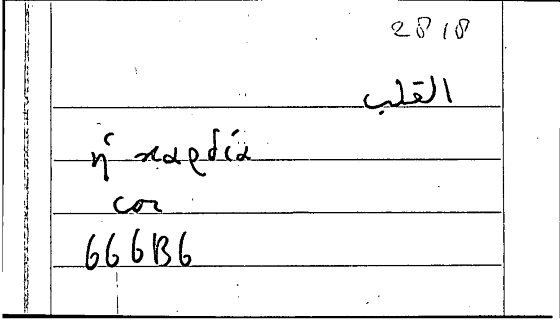 2818
القلب
ἡ καρδία
cor
666B6